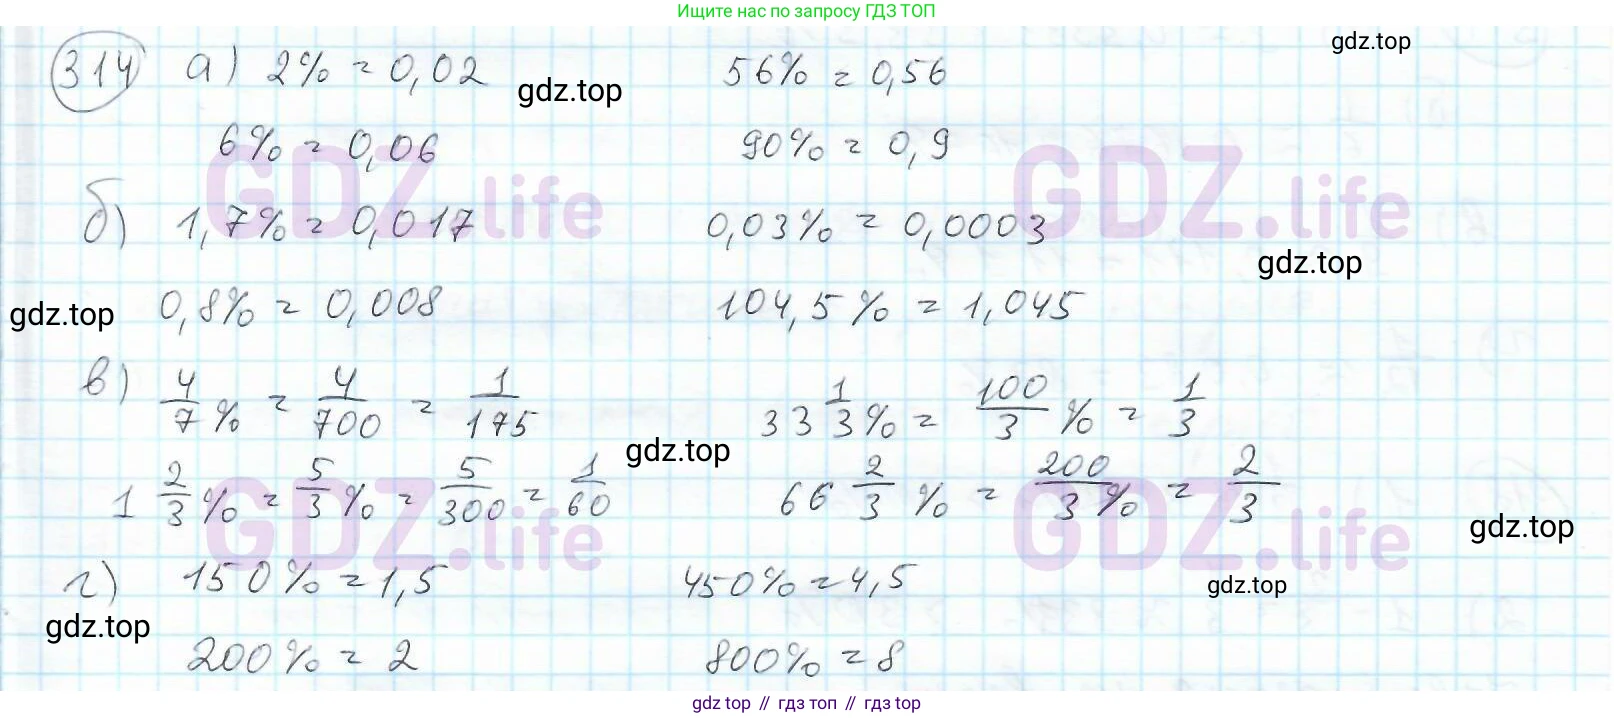 Ищите нас по запросу ГДЗ ТОП
314 а) 2% = 0,02 56% = 0,56
gdz.top
gdz.top
6% = 0,06 90% = 0,9
GDZ.life GDZ.life
б) 1,7% = 0,017 0,03% = 0,0003
gdz.top
0,8% = 0,008 104,5% = 1,045
gdz.top
в) 4/7% = 4/700 = 1/175 33 1/3% = 100/3% = 1/3
gdz.top
1 2/3% = 5/3% = 5/300 = 1/60 66 2/3% = 200/3% = 2/3
GDZ.life GDZ.life
gdz.top
г) 150% = 1,5 450% = 4,5
gdz.top
gdz.top
200% = 2 800% = 8
gdz top // гдз топ // gdz top